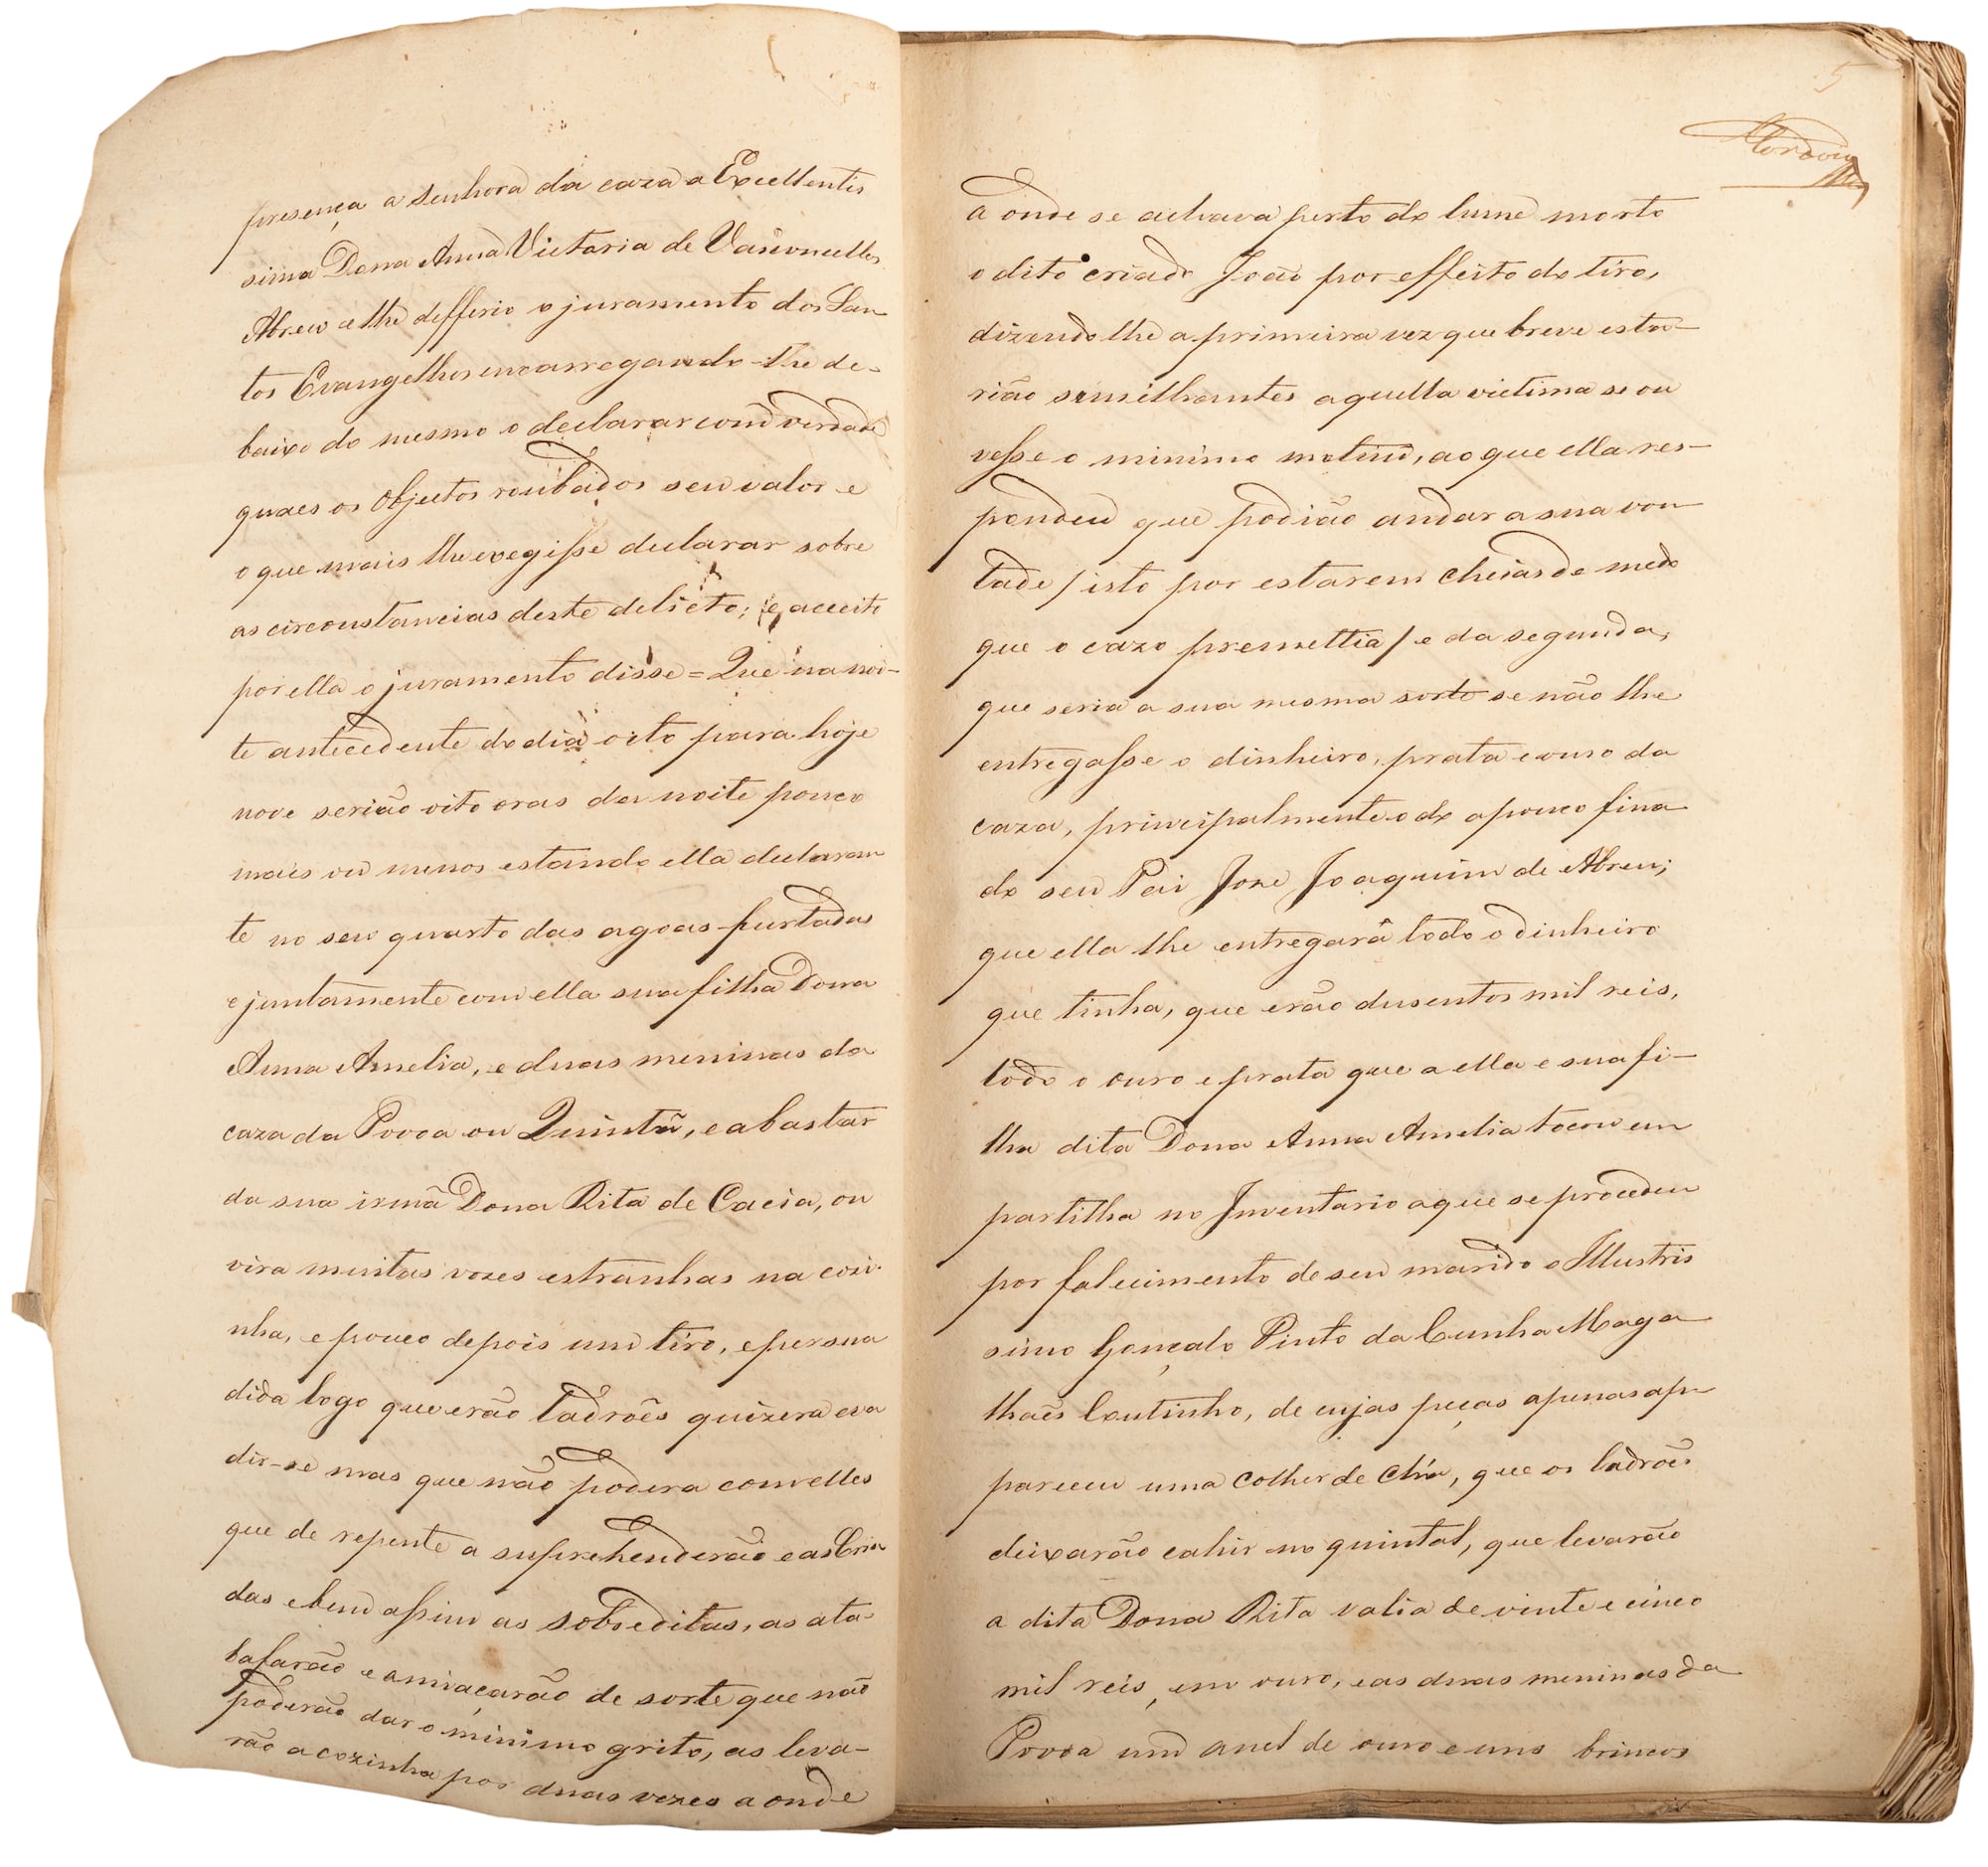 presença a Senhora da caza a Excellentis
sima Dona Anna Victoria de Vasconcellos
Abreu e lhe defferio o juramento dos San
tos Evangelhos encarregando-lhe de-
baixo do mesmo o declarar com verdade
quaes os objectos roubados seu valor e
o que mais lhe exegisse declarar sobre
as circonstancias deste delicto; e acceito
por ella o juramento disse = Que na noi-
te antecedente do dia oito para hoje
nove serião oito oras da noite pouco
mais ou menos estando ella declaran
te no seu quarto das agoas furtadas
e juntamente com ella sua filha Dona
Anna Amelia, e duas meninas da
caza da Povoa ou Quintã, e a bastar
da sua irmã Dona Rita de Cacia, ou
vira muitas vozes estranhas na cozi-
nha, e pouco depois um tiro, e persua
dida logo que erão Ladrões quizera eva
dir-se mas que não podera com elles
que de repente a suprehenderão e as Cria
das e bem assim as sobreditas, as ata-
bafarão e amiaçarão de sorte que não
poderão dar o minimo grito, as leva-
rão a cozinha por duas vezes a onde
5
a onde se achava perto do lume morto
o dito criado João por effeito do tiro,
dizendo lhe a primeira vez que breve esta-
rião similhantes aquella victima se ou
vesse o minimo motim, ao que ella res-
pondeu que podião andar a sua von
tade / isto por estarem cheias de medo
que o cazo premettia / e da segunda,
que seria a sua mesma sorte se não lhe
entregasse o dinheiro, prata e ouro da
caza, principalmente o do apouco fina
do seu Pai Joze Joaquim de Abreu;
que ella lhe entregarâ todo o dinheiro
que tinha, que erão dusentos mil reis,
todo o ouro e prata que a ella e sua fi-
lha dita Dona Anna Amelia tocou em
partilha no Inventario a que se procedeu
por falecimento de seu marido o Illustris
simo Gonçalo Pinto da Cunha Maga
lhaēs Coutinho, de cujas peças apenas ap
pareceu uma colher de Chá, que os ladrões
deixarão cahir no quintal, que levarão
a dita Dona Rita valia de vinte e cinco
mil reis, em ouro, e as duas meninas da
Povoa um anel de ouro e uns brincos